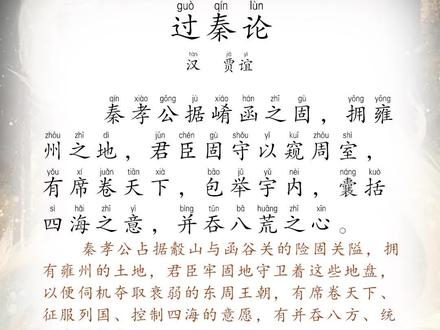 guò qín lùn
过秦论
hàn jiǎ yì
汉 贾谊
qín xiào gōng jù xiáo hán zhī gù yōng yōng
秦孝公据崤函之固，拥雍
zhōu zhī dì jūn chén gù shǒu yǐ kuī zhōu shì
州之地，君臣固守以窥周室，
yǒu xí juǎn tiān xià bāo jǔ yǔ nèi náng kuò
有席卷天下，包举宇内，囊括
sì hǎi zhī yì bìng tūn bā huāng zhī xīn
四海之意，并吞八荒之心。
秦孝公占据殽山与函谷关的险固关隘，拥
有雍州的土地，君臣牢固地守卫着这些地盘，
以便伺机夺取衰弱的东周王朝，有席卷天下、
征服列国、控制四海的意愿，有并吞八方、统